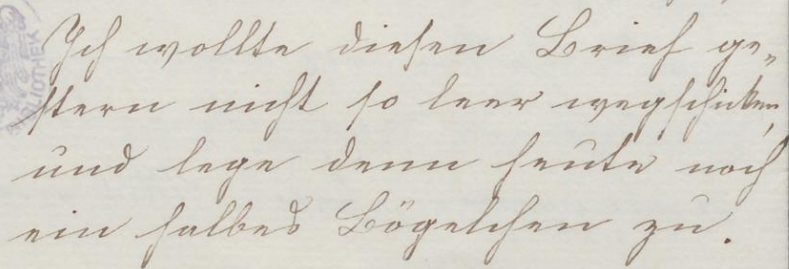 Ich wollte diesen Brief ge-
stern nicht so leer wegschicken,
und lege denn heute noch
ein halbes Bögelchen zu.